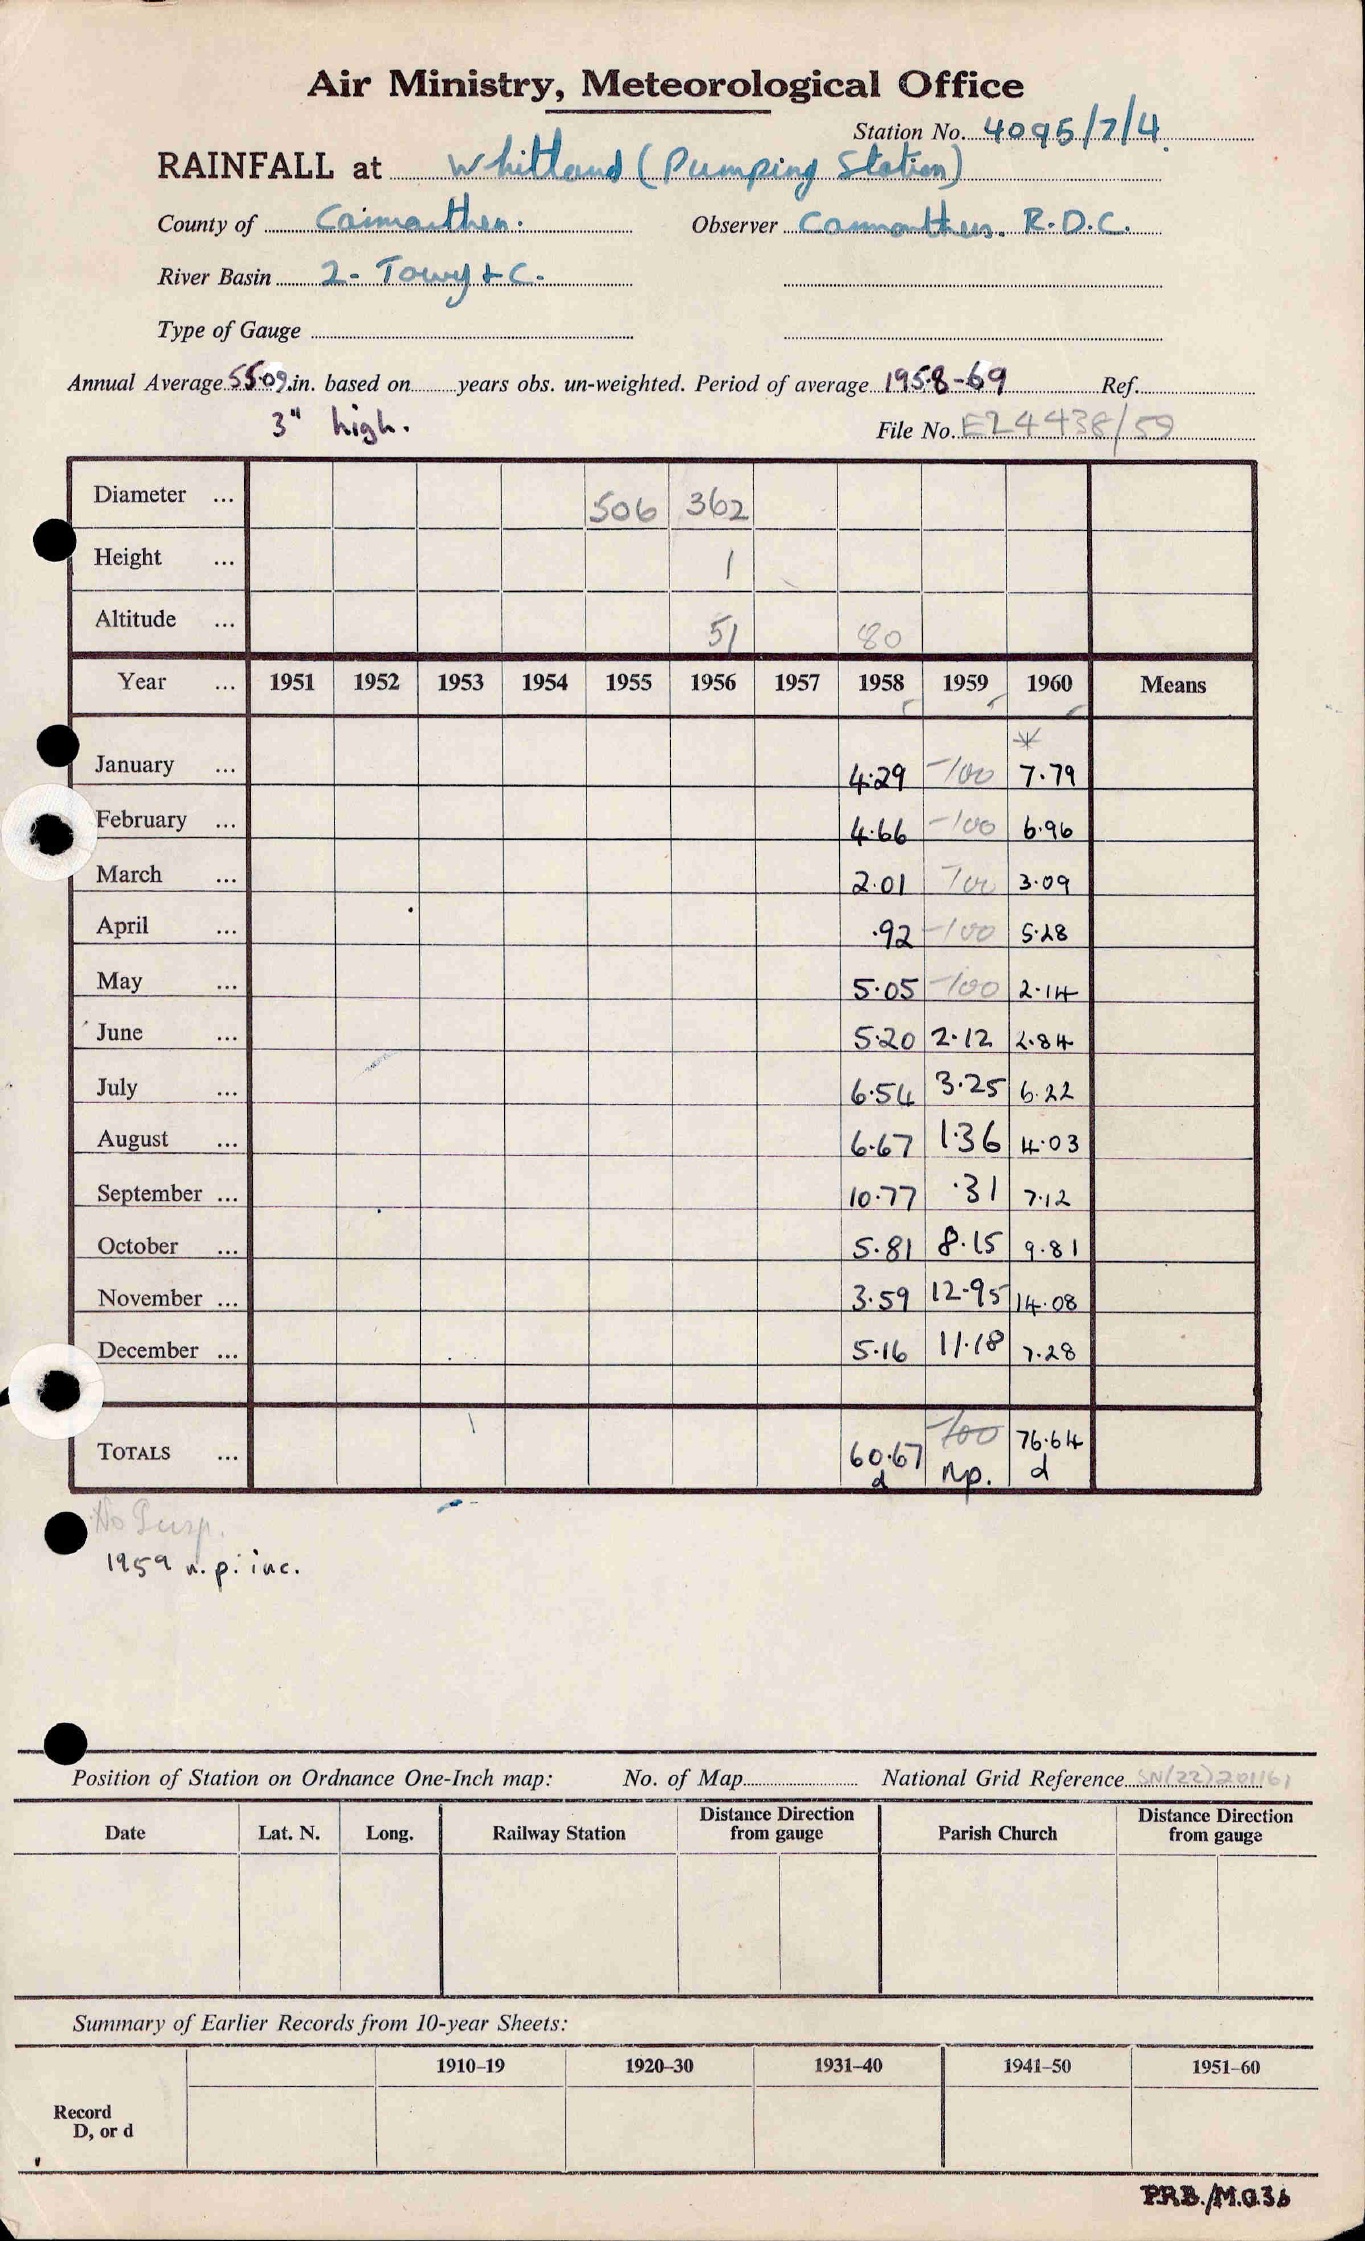 Air Ministry, Meteorological Office
Station No. 4095/7/4
RAINFALL at Whitland (Pumping Station)
County of Carmarthen. Observer Carmarthen. R.D.C.
River Basin 2 - Towy & C.
Type of Gauge
Annual Average 55.09 in. based on years obs. un-weighted. Period of average 1958-69 Ref.
3" high. File No. E24438/59
Diameter ... 506 362
Height ... 1
Altitude ... 51 80
Year ... 1951 1952 1953 1954 1955 1956 1957 1958 1959 1960 Means
*
January ... 4.29 -100 7.79
February ... 4.66 -100 6.96
March ... 2.01 -100 3.09
April ... .92 -100 5.28
May ... 5.05 -100 2.14
June ... 5.20 2.12 2.84
July ... 6.54 3.25 6.22
August ... 6.67 1.36 4.03
September ... 10.77 .31 7.12
October ... 5.81 8.15 9.81
November ... 3.59 12.95 14.08
December ... 5.16 11.18 7.28
TOTALS ... 60.67 -100 76.64
d np. d
No
1959 n.p. inc.
Position of Station on Ordnance One-Inch map: No. of Map National Grid Reference SN(22)201161
Date Lat. N. Long. Railway Station Distance Direction from gauge Parish Church Distance Direction from gauge
Summary of Earlier Records from 10-year Sheets:
1910–19 1920–30 1931–40 1941–50 1951–60
Record
D, or d
P.R.B./M.O.36